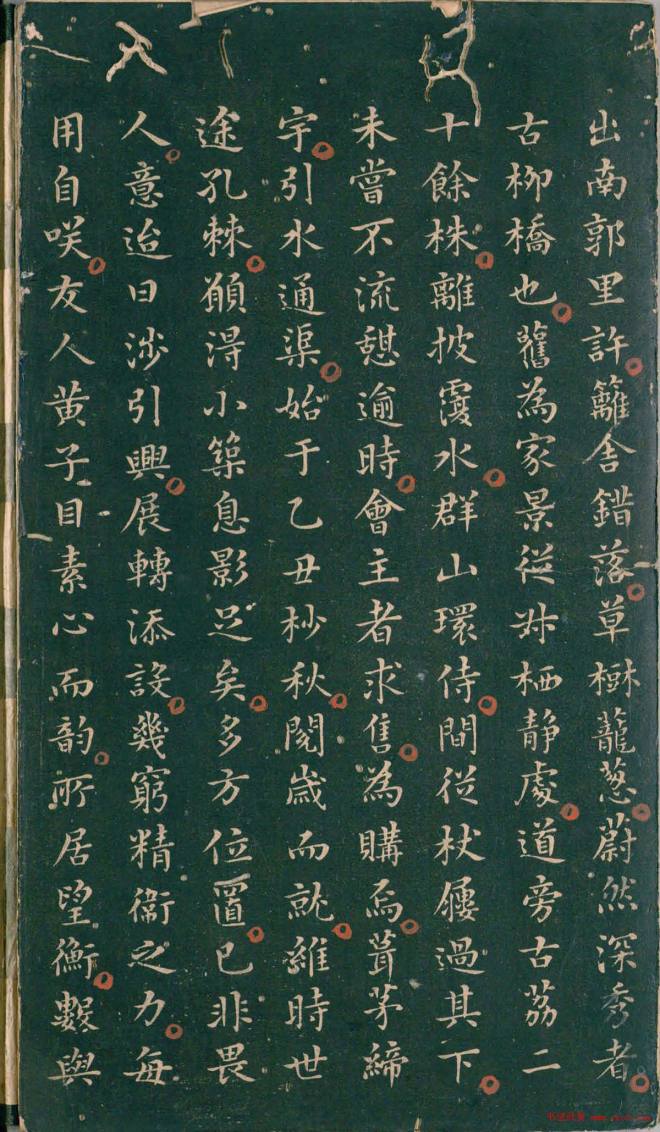 出南郭里許籬舍錯落草樹蘢葱蔚然深秀者
古柳橋也舊為家景從叔栖静處道旁古荔二
十餘株離披覆水群山環侍間從杖屨過其下
未嘗不流憇逾時會主者求售為購焉葺茅締
宇引水通渠始于乙丑杪秋閱歲而就維時世
途孔棘願得小築息影足矣多方位置已非畏
人意迨日涉引興展轉添設幾窮精衞之力每
用自咲友人黄子目素心而韵所居望衡數與